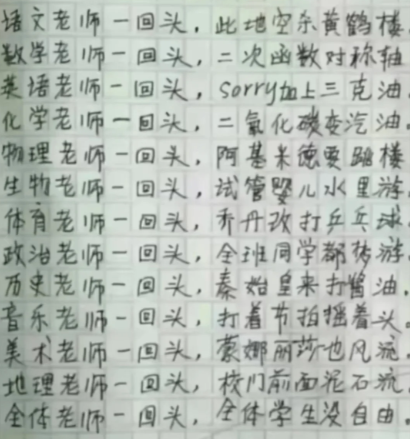 语文老师一回头，此地空余黄鹤楼.
数学老师一回头，二次函数对称轴
英语老师一回头，sorry加上三克油.
化学老师一回头，二氧化碳变汽油.
物理老师一回头，阿基米德要跳楼
生物老师一回头，试管婴儿水里游
体育老师一回头，乔丹改打乒乓球.
政治老师一回头，全班同学都转游.
历史老师一回头，秦始皇来打酱油.
音乐老师一回头，打着节拍摇着头.
美术老师一回头，蒙娜丽莎也风流.
地理老师一回头，校门前面泥石流.
全体老师一回头，全体学生没自由.